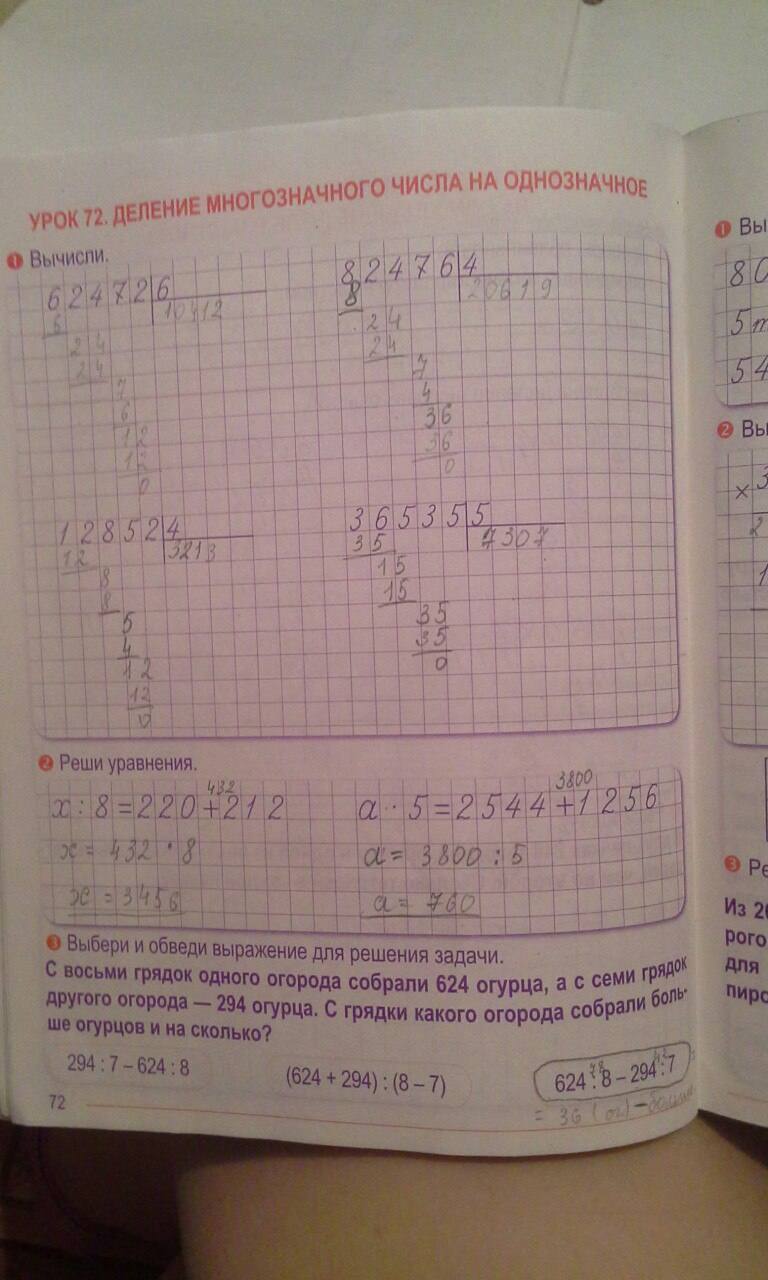 УРОК 72. ДЕЛЕНИЕ МНОГОЗНАЧНОГО ЧИСЛА НА ОДНОЗНАЧНОЕ
1 Вычисли.
624726
10412
6
24
24
7
6
12
12
0
824764
20619
8
24
24
7
4
36
36
0
128524
3213
12
8
8
5
4
12
12
0
365355
7307
35
15
15
35
35
0
2 Реши уравнения.
432
х : 8 = 220 + 212
х = 432 · 8
х = 3456
3800
а · 5 = 2544 + 1256
а = 3800 : 5
а = 760
3 Выбери и обведи выражение для решения задачи.
С восьми грядок одного огорода собрали 624 огурца, а с семи грядок
другого огорода — 294 огурца. С грядки какого огорода собрали боль-
ше огурцов и на сколько?
294 : 7 – 624 : 8
(624 + 294) : (8 – 7)
78 42
624 : 8 – 294 : 7
= 36 (ог) –
72
1 Вы
80
5
54
2 Вы
× 3
2
1
3 Ре
Из 2
рого
для
пиро